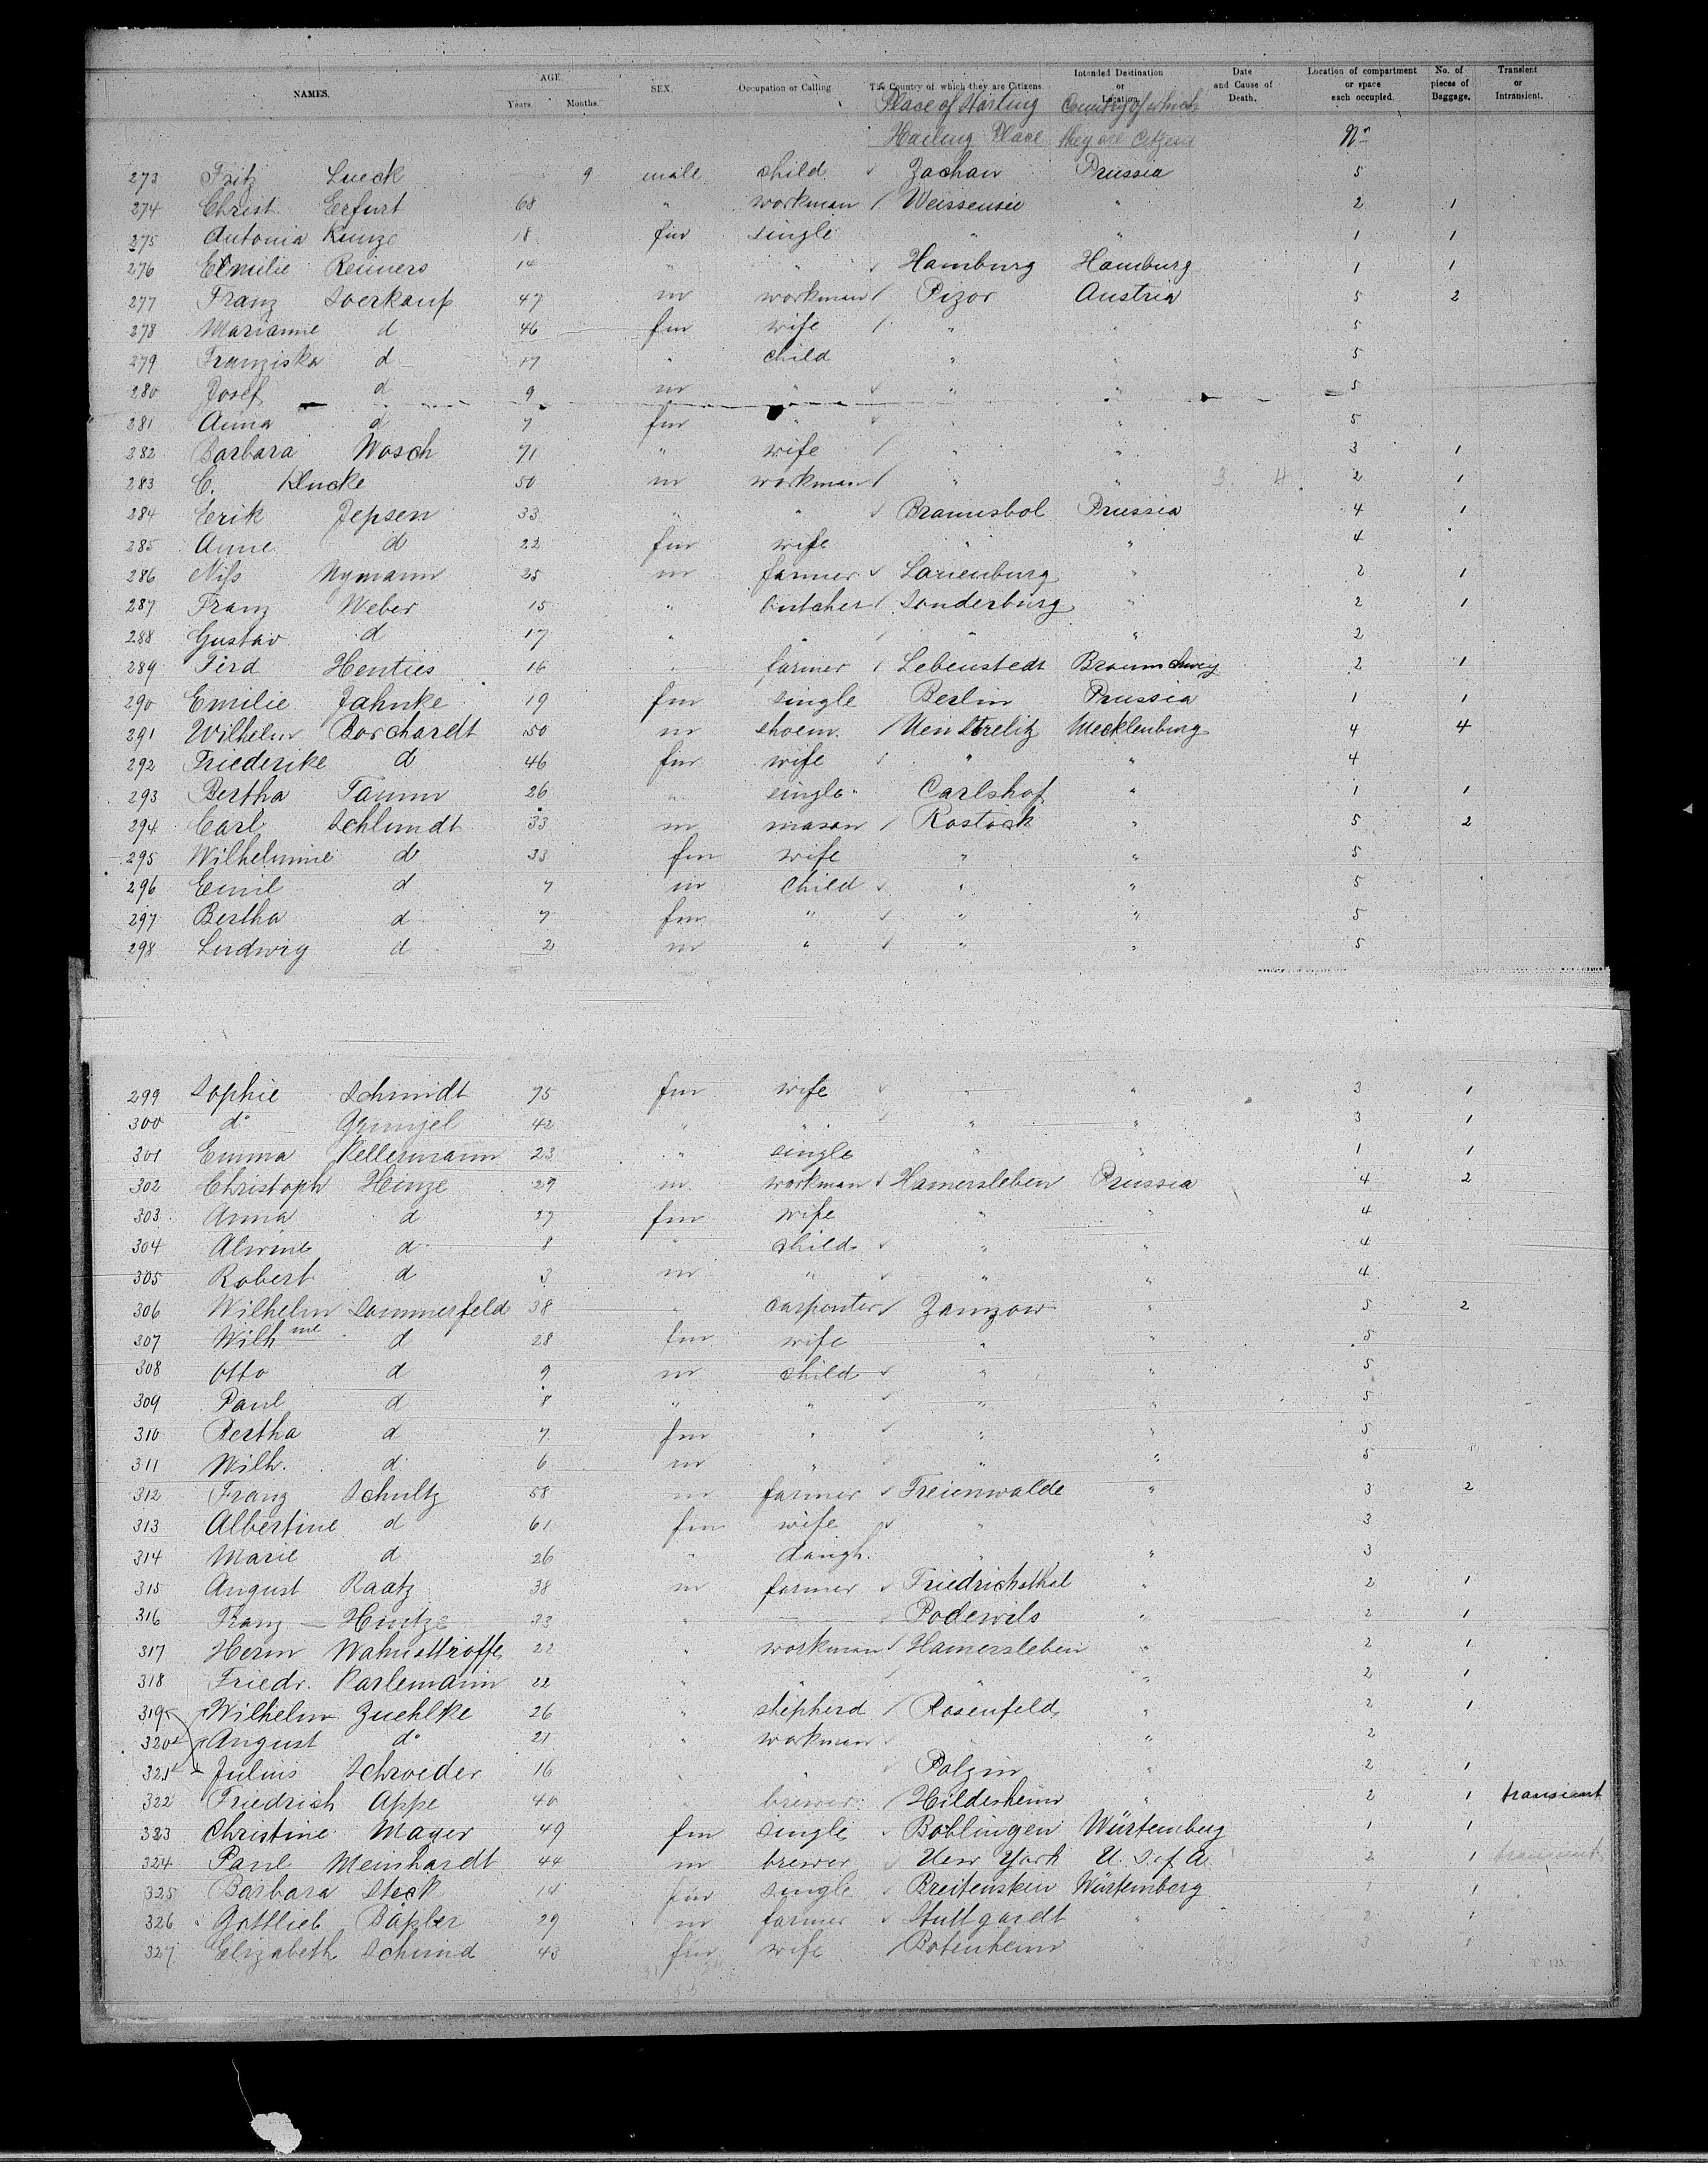 NAMES. AGE. Years. Months. SEX. Occupation or Calling. The Country of which they are Citizens. Intended Destination or Location. Date and Cause of Death. Location of compartment or space each occupied. No. of pieces of Baggage. Transient or Intransient.
Place of Starting Country of which
Hailing Place they are Citizens Nr
273 Fritz Lueck 9 male child Zachan Prussia 5
274 Christ. Erfurt 68 " workman Weissensee " 2 1
275 Antonia Kunze 18 fm single " " 1 1
276 Emilie Reimers 14 " " Hamburg Hamburg 1 1
277 Franz 47 m workman Pizor Austria 5 2
278 Marianne d 46 fm wife " " 5
279 Franziska d 17 " child " " 5
280 Josef d 9 m " " " 5
281 Anna d 7 fm " " " 5
282 Barbara Wosch 71 " wife " " 3 1
283 C. Klucke 50 m workman " " 2 1
284 Erik Jepsen 33 " " Braunsbol Prussia 4 1
285 Anne d 22 fm wife " " 4
286 Niss Nymann 25 m farmer Lauenburg " 2 1
287 Franz Weber 15 " butcher Sonderburg " 2 1
288 Gustav d 17 " " " " 2
289 Ferd Henties 16 " farmer Lebenstedt Braunschweig 2 1
290 Emilie Jahnke 19 fm single Berlin Prussia 1 1
291 Wilhelm Borchardt 50 m shoem. Neu Strelitz Mecklenburg 4 4
292 Friederike d 46 fm wife " " 4
293 Bertha Tamm 26 " single Carlshof " 1 1
294 Carl Schlundt 33 m mason Rostock " 5 2
295 Wilhelmine d 33 fm wife " " 5
296 Emil d 7 m child " " 5
297 Bertha d 7 fm " " " 5
298 Ludwig d 2 m " " " 5
299 Sophie Schmidt 75 fm wife " " 3 1
300 do 42 " " " " 3 1
301 Emma Kellermann 23 " single " " 1 1
302 Christoph Hinze 29 m workman Hamersleben Prussia 4 2
303 Anna d 27 fm wife " " 4
304 Alwine d 8 " child " " 4
305 Robert d 3 m " " " 4
306 Wilhelm Sommerfeld 38 " carpenter Zamzow " 5 2
307 Wilhme d 28 fm wife " " 5
308 Otto d 9 m child " " 5
309 Paul d 8 " " " " 5
310 Bertha d 7 fm " " " 5
311 Wilh. d 6 m " " " 5
312 Franz Schultz 58 m farmer Freienwalde " 3 2
313 Albertine d 61 fm wife " " 3
314 Marie d 26 " daugh. " " 3
315 August Raatz 38 m farmer Friedrichsthal " 2 1
316 Franz — Hintze 33 " — Podewils " 2 1
317 Herm 22 " workman Hamersleben " 2 1
318 Friedr. Karlemann 22 " " " " 2 1
319 Wilhelm Zuehlke 26 " shepherd Rosenfeld " 2 1
320 August do 21 " workman " " 2
321 Julius Schroeder 16 " " Polzin " 2 1
322 Friedrich Appe 40 " brewer Hildesheim " 2 1 transient
323 Christine Mayer 49 fm single Boblingen Würtemberg 1 1
324 Paul Meinhardt 44 m brewer New York U. S. of A. 2 1 transient
325 Barbara Steck 14 fm single Würtemberg 1 1
326 Gottlieb 29 m farmer Stuttgardt " 2 1
327 Elizabeth Schmid 43 fm wife Botenheim " 3 1